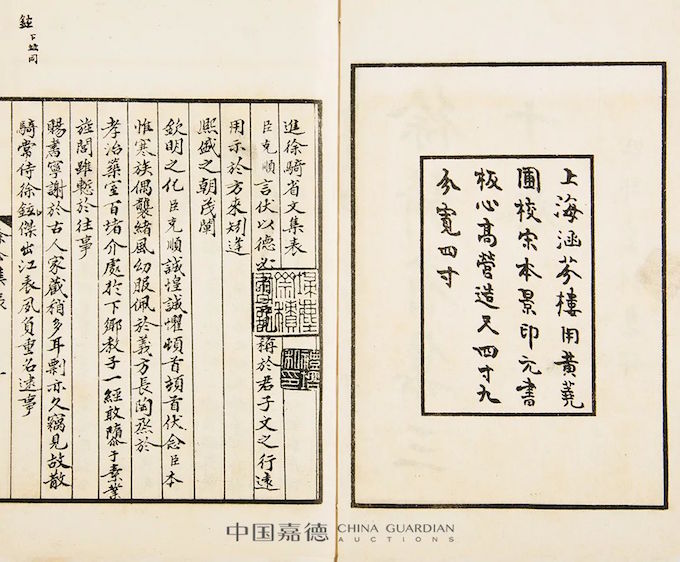 上海涵芬樓用黃蕘
圃校宋本景印元書
板心高營造尺四寸九
分寬四寸
進徐騎省文集表
臣克順言伏以德必
稱於君子文之行遠
用示於方來矧逢
熙盛之朝茂闡
欽明之化臣克順誠惶誠懼頓首頓首伏念臣本
惟寒族偶襲緒風幼服佩於義方長陶烝於
孝治築室百堵介處於下鄉教子一經敢隳于素業
旌閭雖慙於往事
賜書寧謝於古人家藏稍多耳剽亦久竊見故散
騎常侍徐鉉傑出江表夙負重名逮事
鉉下並同
中国嘉德 CHINA GUARDIAN
AUCTIONS